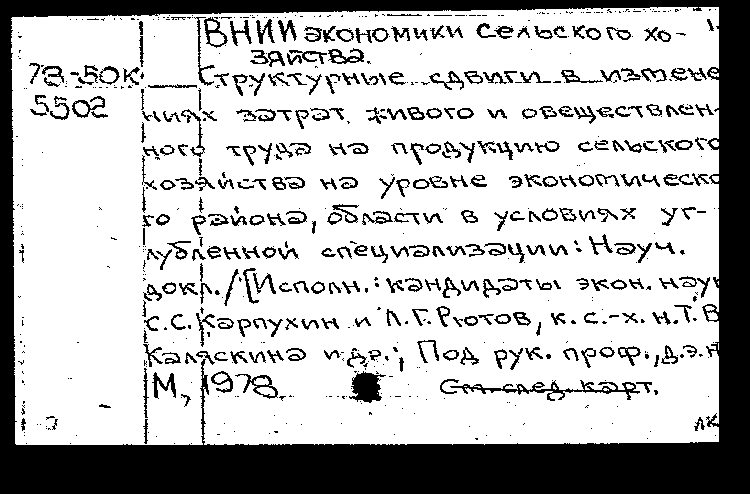 ВНИИ экономики сельского хо-
зяйства.
78-50к Структурные сдвиги в измене
5502 ниях затрат живого и овеществлен-
ного труда на продукцию сельского
хозяйства на уровне экономическо
го района, области в условиях уг-
лубленной специализации: Науч.
докл./[Исполн.: кандидаты экон. наук
С.С. Карпухин и Л.Г. Рютов, к. с.-х. н. Т.В
Каляскина и др.; Под рук. проф., д.э.н
М, 1978.
См. след. карт.